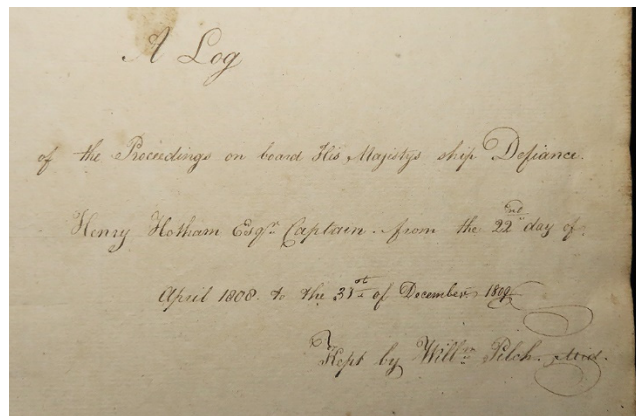 A Log
of the Proceedings on board His Majestys ship Defiance.
Henry Hotham Esqr. Captain. from the 22nd day of
April 1808. to the 31st of December. 1809
Kept by Willm Pilch. Mid.